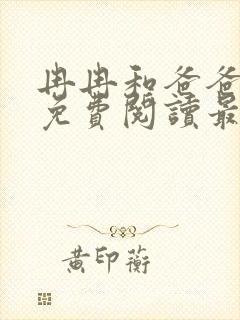 冉冉和爸爸
免費閱讀最
黃印蘅